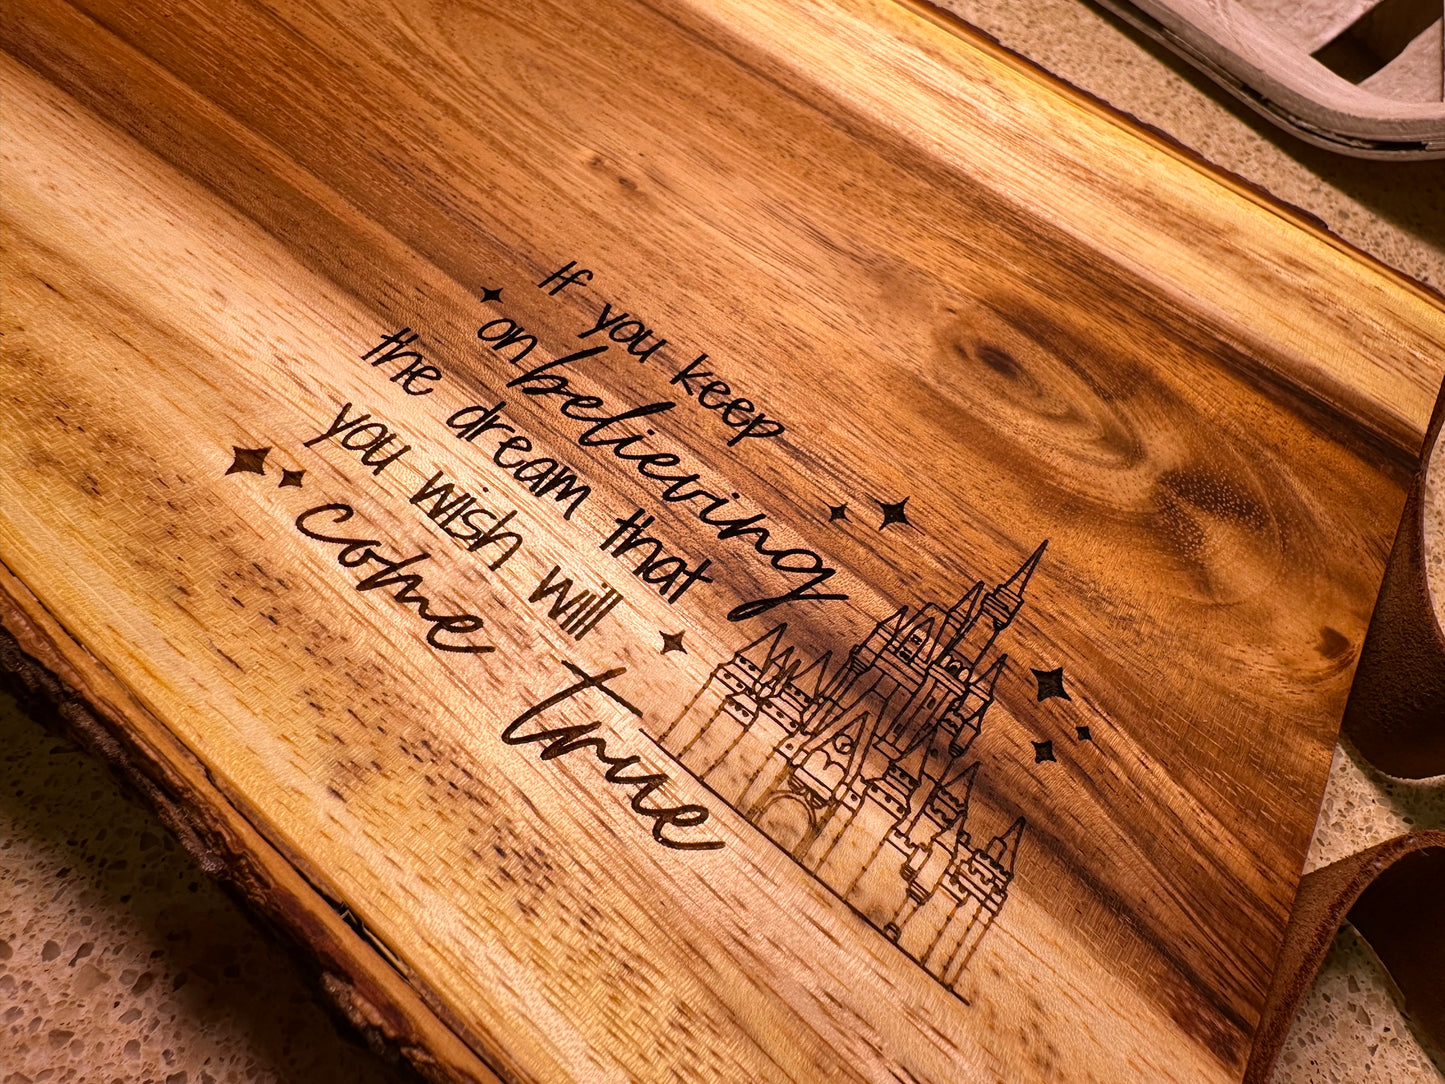 If you keep
on believing
the dream that
you wish will
come true